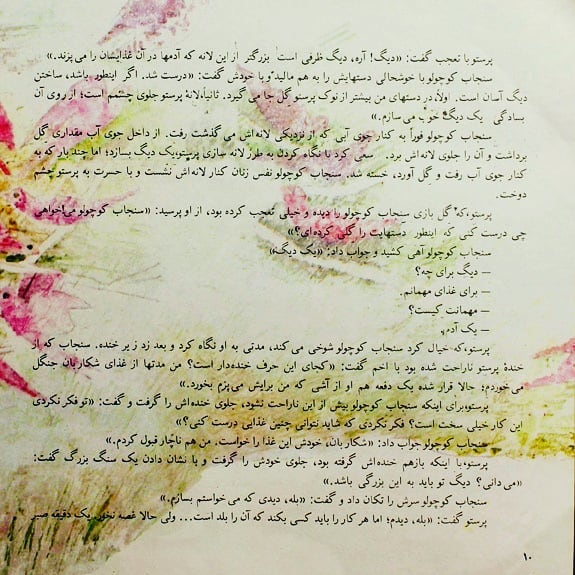 پرستو با تعجب گفت: «دیگ! آره، دیگ ظرفی است بزرگتر از این لانه که آدمها در آن غذایشان را می پزند.»
سنجاب کوچولو با خوشحالی دستهایش را به هم مالید و با خودش گفت: «درست شد. اگر اینطور باشد، ساختن
دیگ آسان است. اولاً، در دستهای من بیشتر از نوک پرستو گل جا می گیرد. ثانیاً، لانهٔ پرستو جلوی چشمم است؛ از روی آن
بسادگی یک دیگ خوب می سازم.»
سنجاب کوچولو فوراً به کنار جوی آبی که از نزدیکی لانه اش می گذشت رفت. از داخل جوی آب مقداری گل
برداشت و آن را جلوی لانه اش برد. سعی کرد با نگاه کردن به طرز لانه سازی پرستو، یک دیگ بسازد؛ اما چند بار که به
کنار جوی آب رفت و گل آورد، خسته شد. سنجاب کوچولو نفس زنان کنار لانه اش نشست و با حسرت به پرستو چشم
دوخت.
پرستو، که گل بازی سنجاب کوچولو را دیده و خیلی تعجب کرده بود، از او پرسید: «سنجاب کوچولو می خواهی
چی درست کنی که اینطور دستهایت را گلی کرده ای؟»
سنجاب کوچولو آهی کشید و جواب داد: «یک دیگ.»
— دیگ برای چه؟
— برای غذای مهمانم.
— مهمانت کیست؟
— یک آدم.
پرستو، که خیال کرد سنجاب کوچولو شوخی می کند، مدتی به او نگاه کرد و بعد زد زیر خنده. سنجاب که از
خندهٔ پرستو ناراحت شده بود با اخم گفت: «کجای این حرف خنده دار است؟ من مدتها از غذای شکاربان جنگل
می خوردم؛ حالا قرار شده یک دفعه هم او از آشی که من برایش می پزم بخورد.»
پرستو برای اینکه سنجاب کوچولو بیش از این ناراحت نشود، جلوی خنده اش را گرفت و گفت: «تو فکر نکردی
این کار خیلی سخت است؟ فکر نکردی که شاید نتوانی چنین غذایی درست کنی؟»
سنجاب کوچولو جواب داد: «شکاربان، خودش این غذا را خواست. من هم ناچار قبول کردم.»
پرستو، با اینکه بازهم خنده اش گرفته بود، جلوی خودش را گرفت و با نشان دادن یک سنگ بزرگ گفت:
«می دانی؟ دیگ تو باید به این بزرگی باشد.»
سنجاب کوچولو سرش را تکان داد و گفت: «بله، دیدی که می خواستم بسازم.»
پرستو گفت: «بله، دیدم؛ اما هر کار را باید کسی بکند که آن را بلد است... ولی حالا غصه نخور. یک دقیقه صبر
۱۰